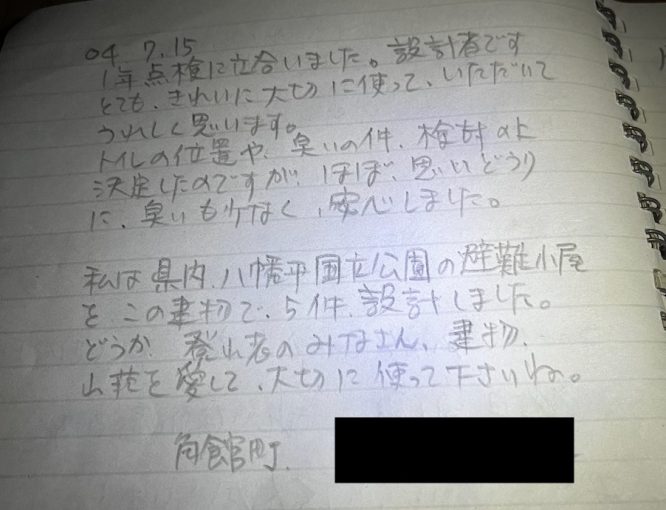 04. 7. 15
1年点検に立合いました。設計者です
とても、きれいに大切に使って、いただいて
うれしく思います。
トイレの位置や、臭いの件、検討の上
決定したのですが、ほぼ、思いどうり
に、臭いも少なく、安心しました。
私は県内、八幡平国立公園の避難小屋
をこの建物で、5件、設計しました。
どうか、登山者のみなさん、建物、
山荘を愛して、大切に使って下さいね。
角館町.